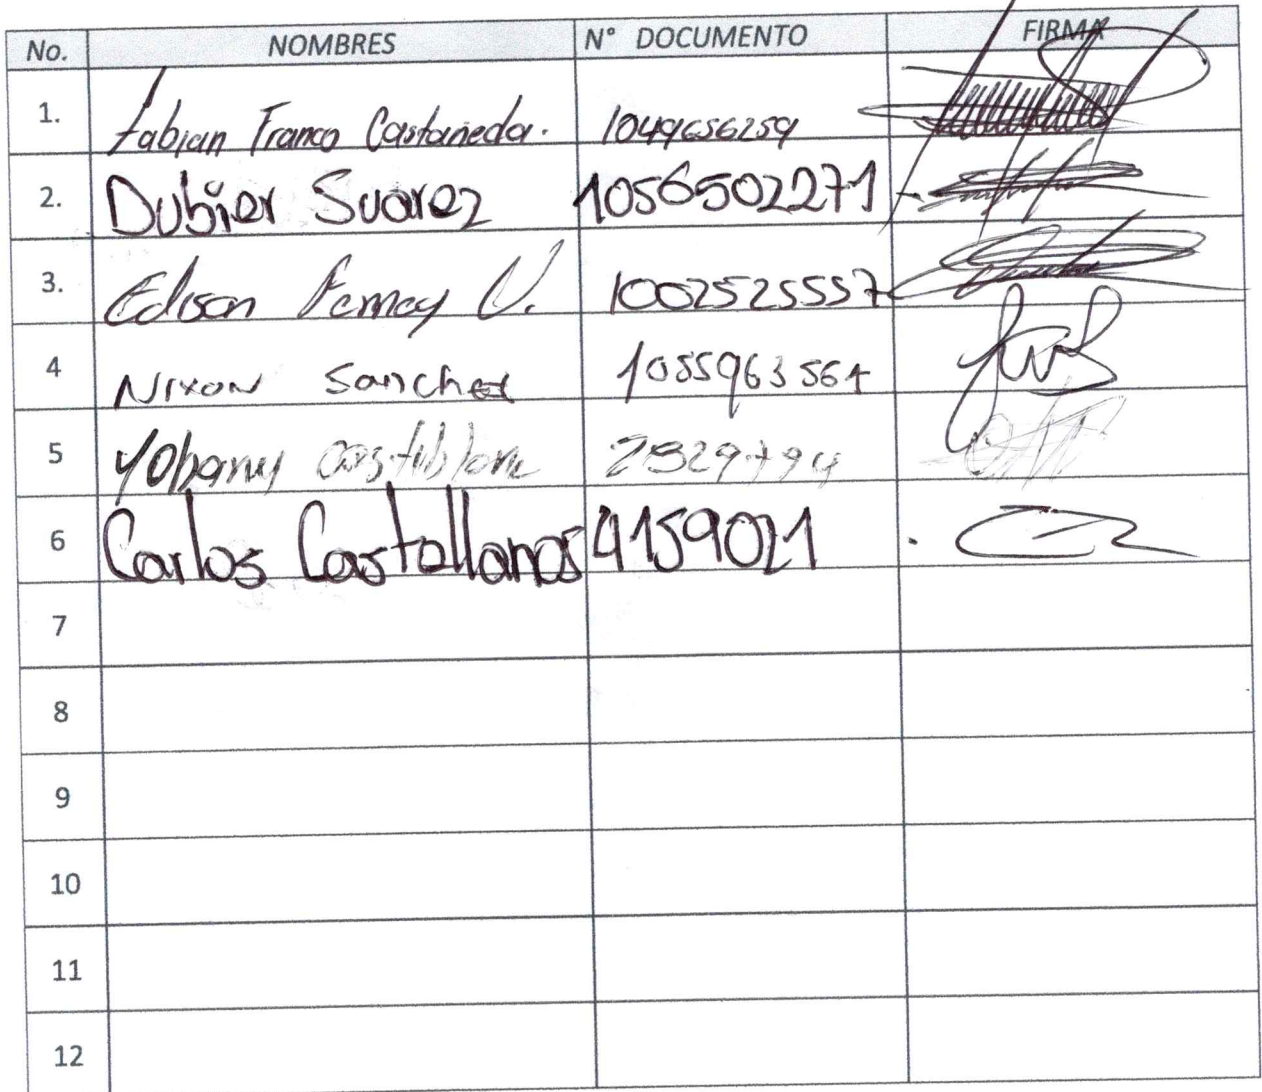 No. NOMBRES N° DOCUMENTO FIRMA
1. Fabian Franco Castañeda. 1049656259
2. Dubier Suarez 1056502271
3. Edison Ferney V. 1002525557
4 Nixon Sanchez 1055963561
5 Yohany
6 Carlos Castellanos 4159021
7
8
9
10
11
12